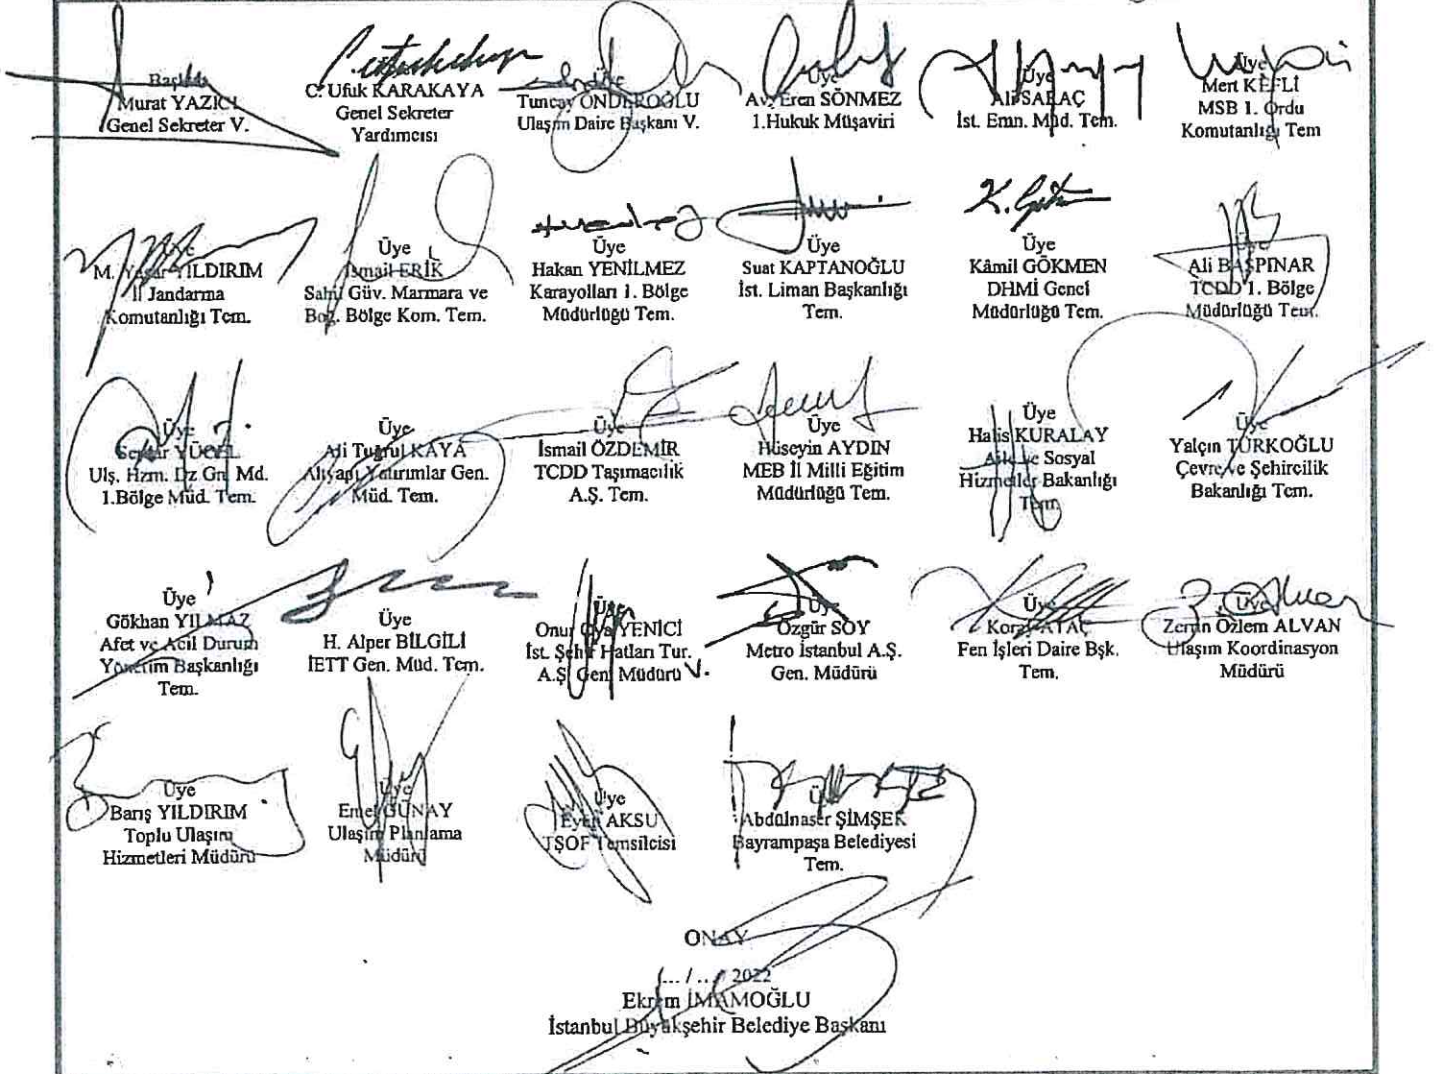 Başkan
Murat YAZICI
Genel Sekreter V.
C. Ufuk KARAKAYA
Genel Sekreter
Yardımcısı
Üye
Tuncay ÖNDEROĞLU
Ulaşım Daire Başkanı V.
Üye
Av. Eren SÖNMEZ
1.Hukuk Müşaviri
Üye
Ali SARAÇ
İst. Emn. Müd. Tem.
Üye
Mert KEFLİ
MSB 1. Ordu
Komutanlığı Tem
Üye
M. Yaşar YILDIRIM
İl Jandarma
Komutanlığı Tem.
Üye
İsmail ERİK
Sahil Güv. Marmara ve
Boğ. Bölge Kom. Tem.
Üye
Hakan YENİLMEZ
Karayolları 1. Bölge
Müdürlüğü Tem.
Üye
Suat KAPTANOĞLU
İst. Liman Başkanlığı
Tem.
Üye
Kâmil GÖKMEN
DHMİ Genel
Müdürlüğü Tem.
Üye
Ali BAŞPINAR
TCDD 1. Bölge
Müdürlüğü Tem.
Üye
YÜCEL
Ulş. Hzm. Dz Gn. Md.
1.Bölge Müd. Tem.
Üye
Ali Tuğrul KAYA
Altyapı Yatırımlar Gen.
Müd. Tem.
Üye
İsmail ÖZDEMİR
TCDD Taşımacılık
A.Ş. Tem.
Üye
Hüseyin AYDIN
MEB İl Milli Eğitim
Müdürlüğü Tem.
Üye
Halis KURALAY
Aile ve Sosyal
Hizmetler Bakanlığı
Tem.
Üye
Yalçın TÜRKOĞLU
Çevre ve Şehircilik
Bakanlığı Tem.
Üye
Gökhan YILMAZ
Afet ve Acil Durum
Yönetim Başkanlığı
Tem.
Üye
H. Alper BİLGİLİ
İETT Gen. Müd. Tem.
Üye
Onur YENİCİ
İst. Şehir Hatları Tur.
A.Ş. Gen. Müdürü V.
Üye
Özgür SOY
Metro İstanbul A.Ş.
Gen. Müdürü
Üye
Koray ATAÇ
Fen İşleri Daire Bşk.
Tem.
Üye
Zerrin Özlem ALVAN
Ulaşım Koordinasyon
Müdürü
Üye
Barış YILDIRIM
Toplu Ulaşım
Hizmetleri Müdürü
Üye
Emel GÜNAY
Ulaşım Planlama
Müdürü
Üye
Eyüp AKSU
TŞOF Temsilcisi
Ü
Abdülnaser ŞİMŞEK
Bayrampaşa Belediyesi
Tem.
ONAY
... / ... / 2022
Ekrem İMAMOĞLU
İstanbul Büyükşehir Belediye Başkanı